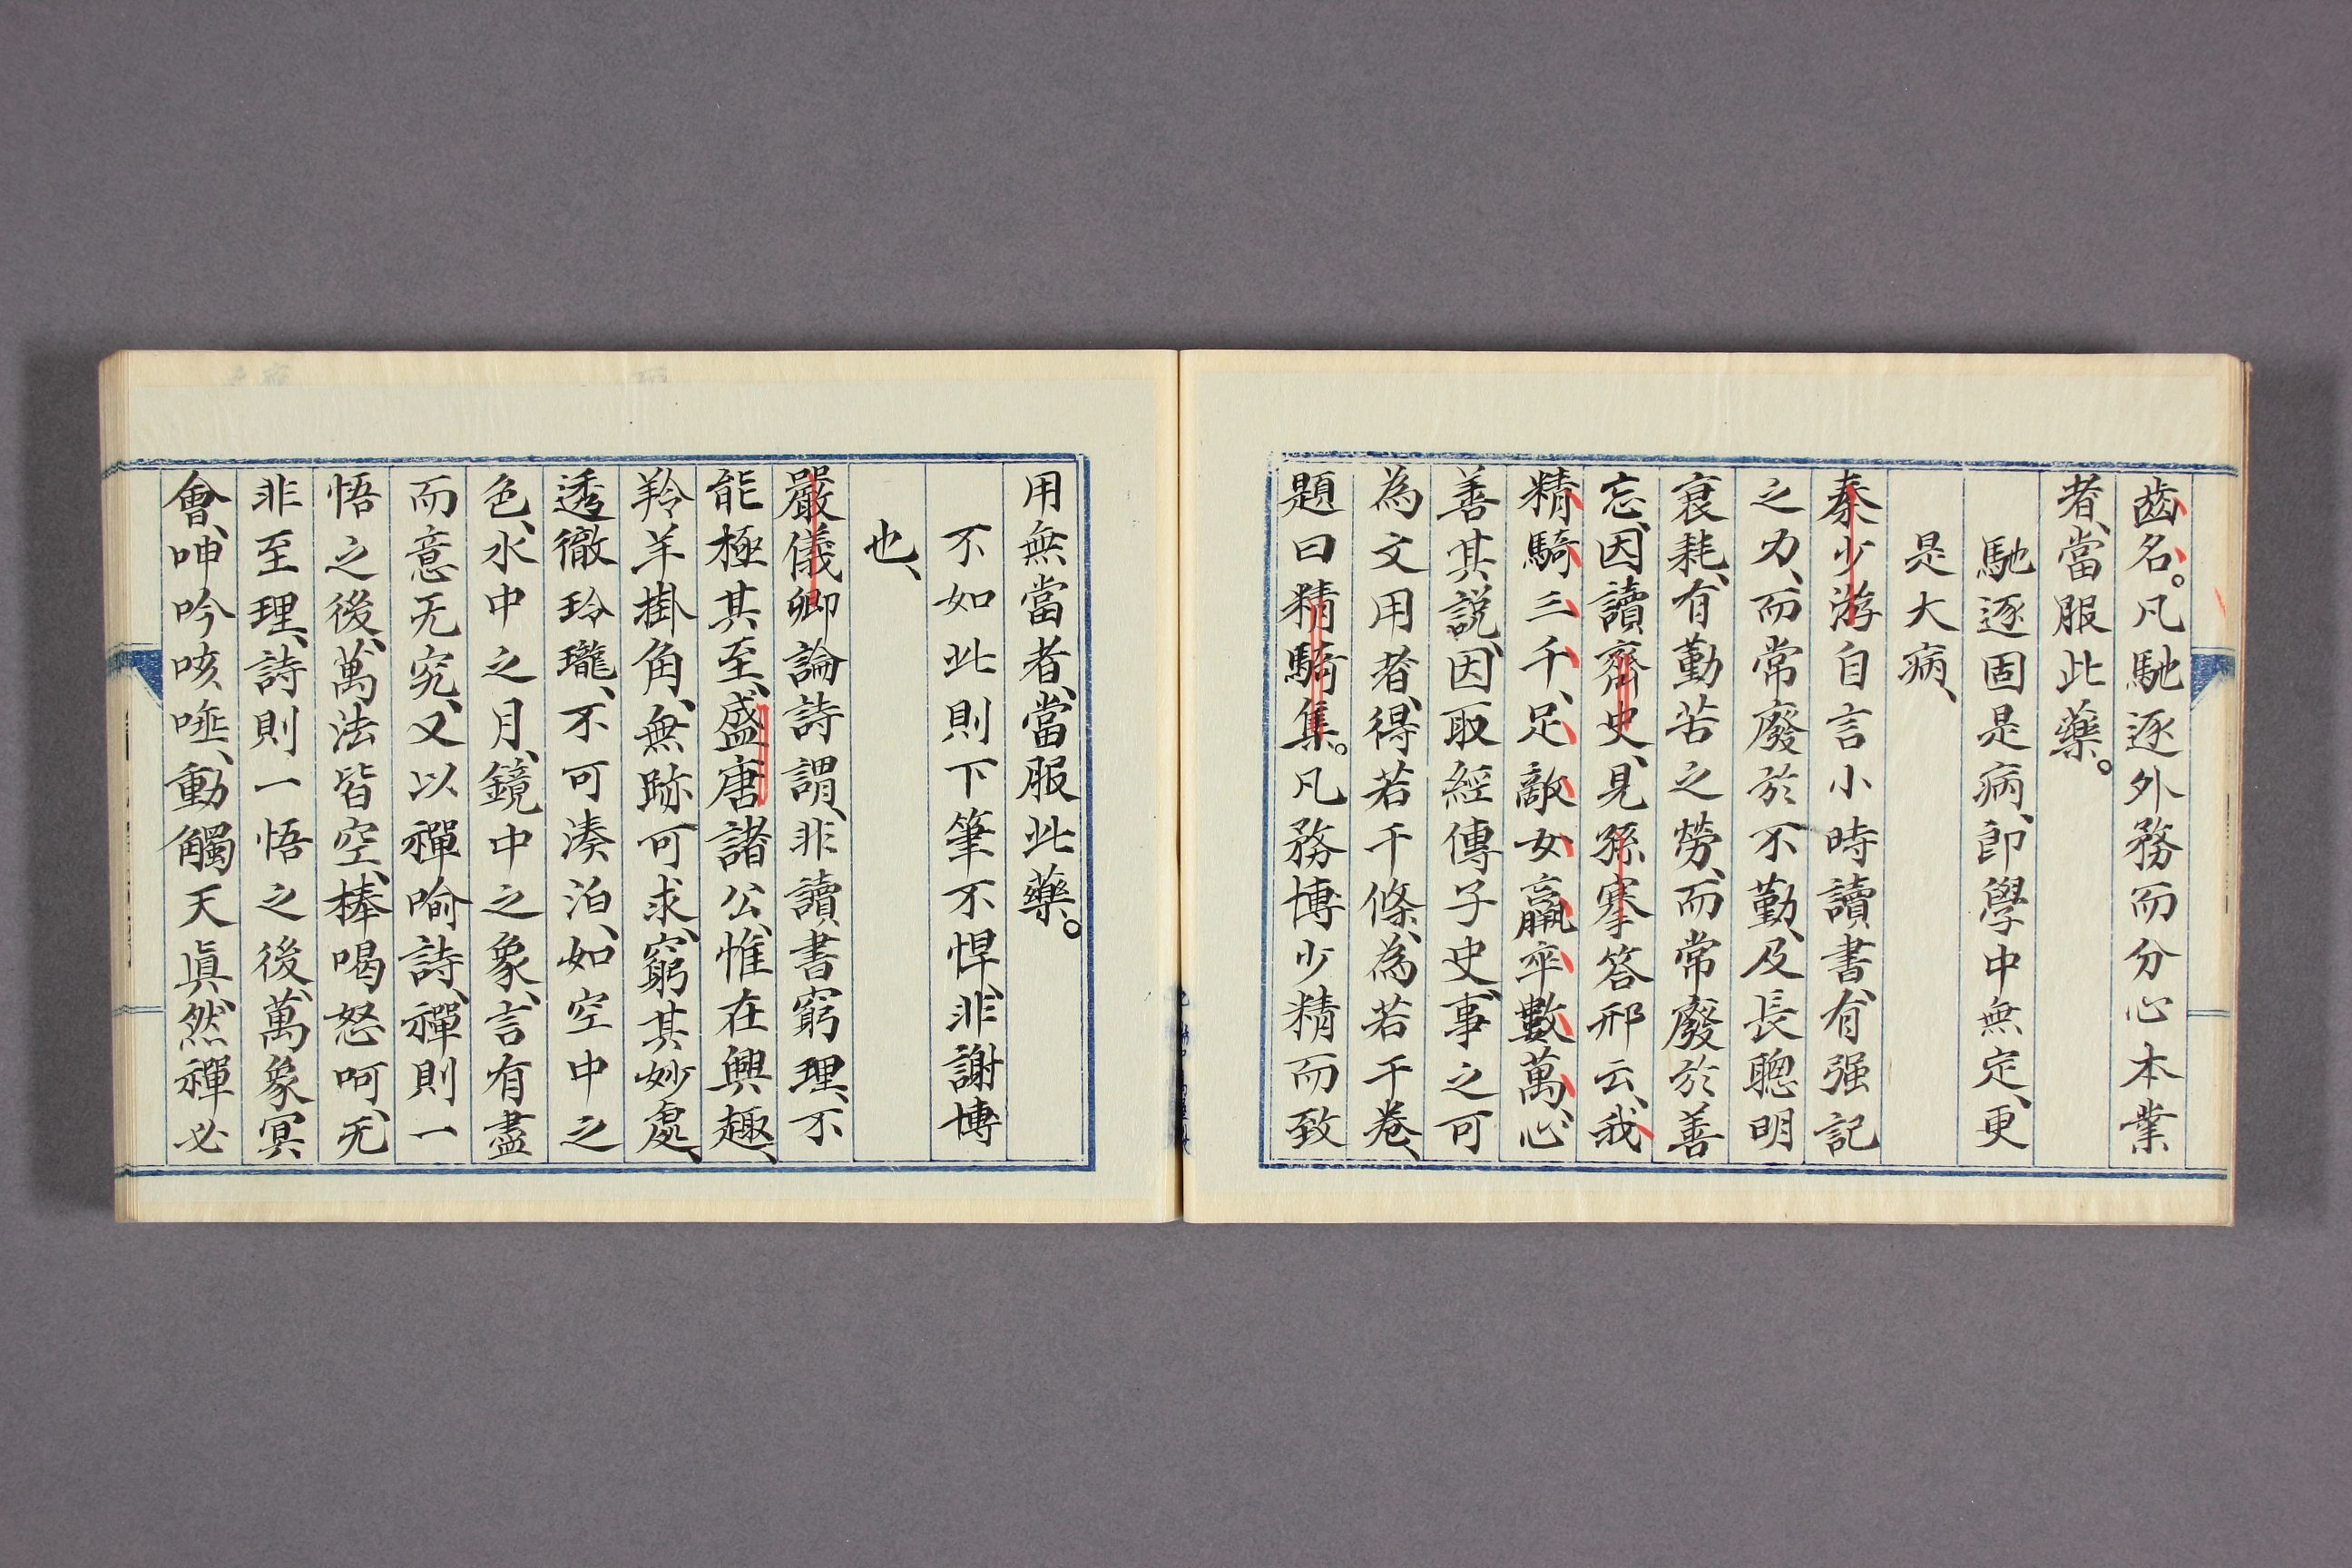 齒名。凡馳逐外務而分心本業
者、當服此藥。
馳逐固是病、即學中無定、更
是大病、
秦少游自言小時讀書、有强記
之力、而常廢於不勤、及長聰明
衰耗、有勤苦之勞、而常廢於善
忘、因讀齊史、見孫搴答邢云、我
精騎三千、足敵女羸卒數萬、心
善其説、因取經傳子史事之可
為文用者、得若干條、為若干卷、
題曰精騎集。凡務博少精而致
用無當者、當服此藥。
不如此則下筆不悍、非謝博
也、
嚴儀卿論詩謂、非讀書窮理、不
能極其至、盛唐諸公、惟在興趣、
羚羊掛角、無跡可求、窮其妙處、
透徹玲瓏、不可湊泊、如空中之
色、水中之月、鏡中之象、言有盡
而意无究、又以禪喻詩、禪則一
悟之後、萬法皆空、棒喝怒呵、无
非至理、詩則一悟之後、萬象冥
會、呻吟咳唾、動觸天眞、然禪必